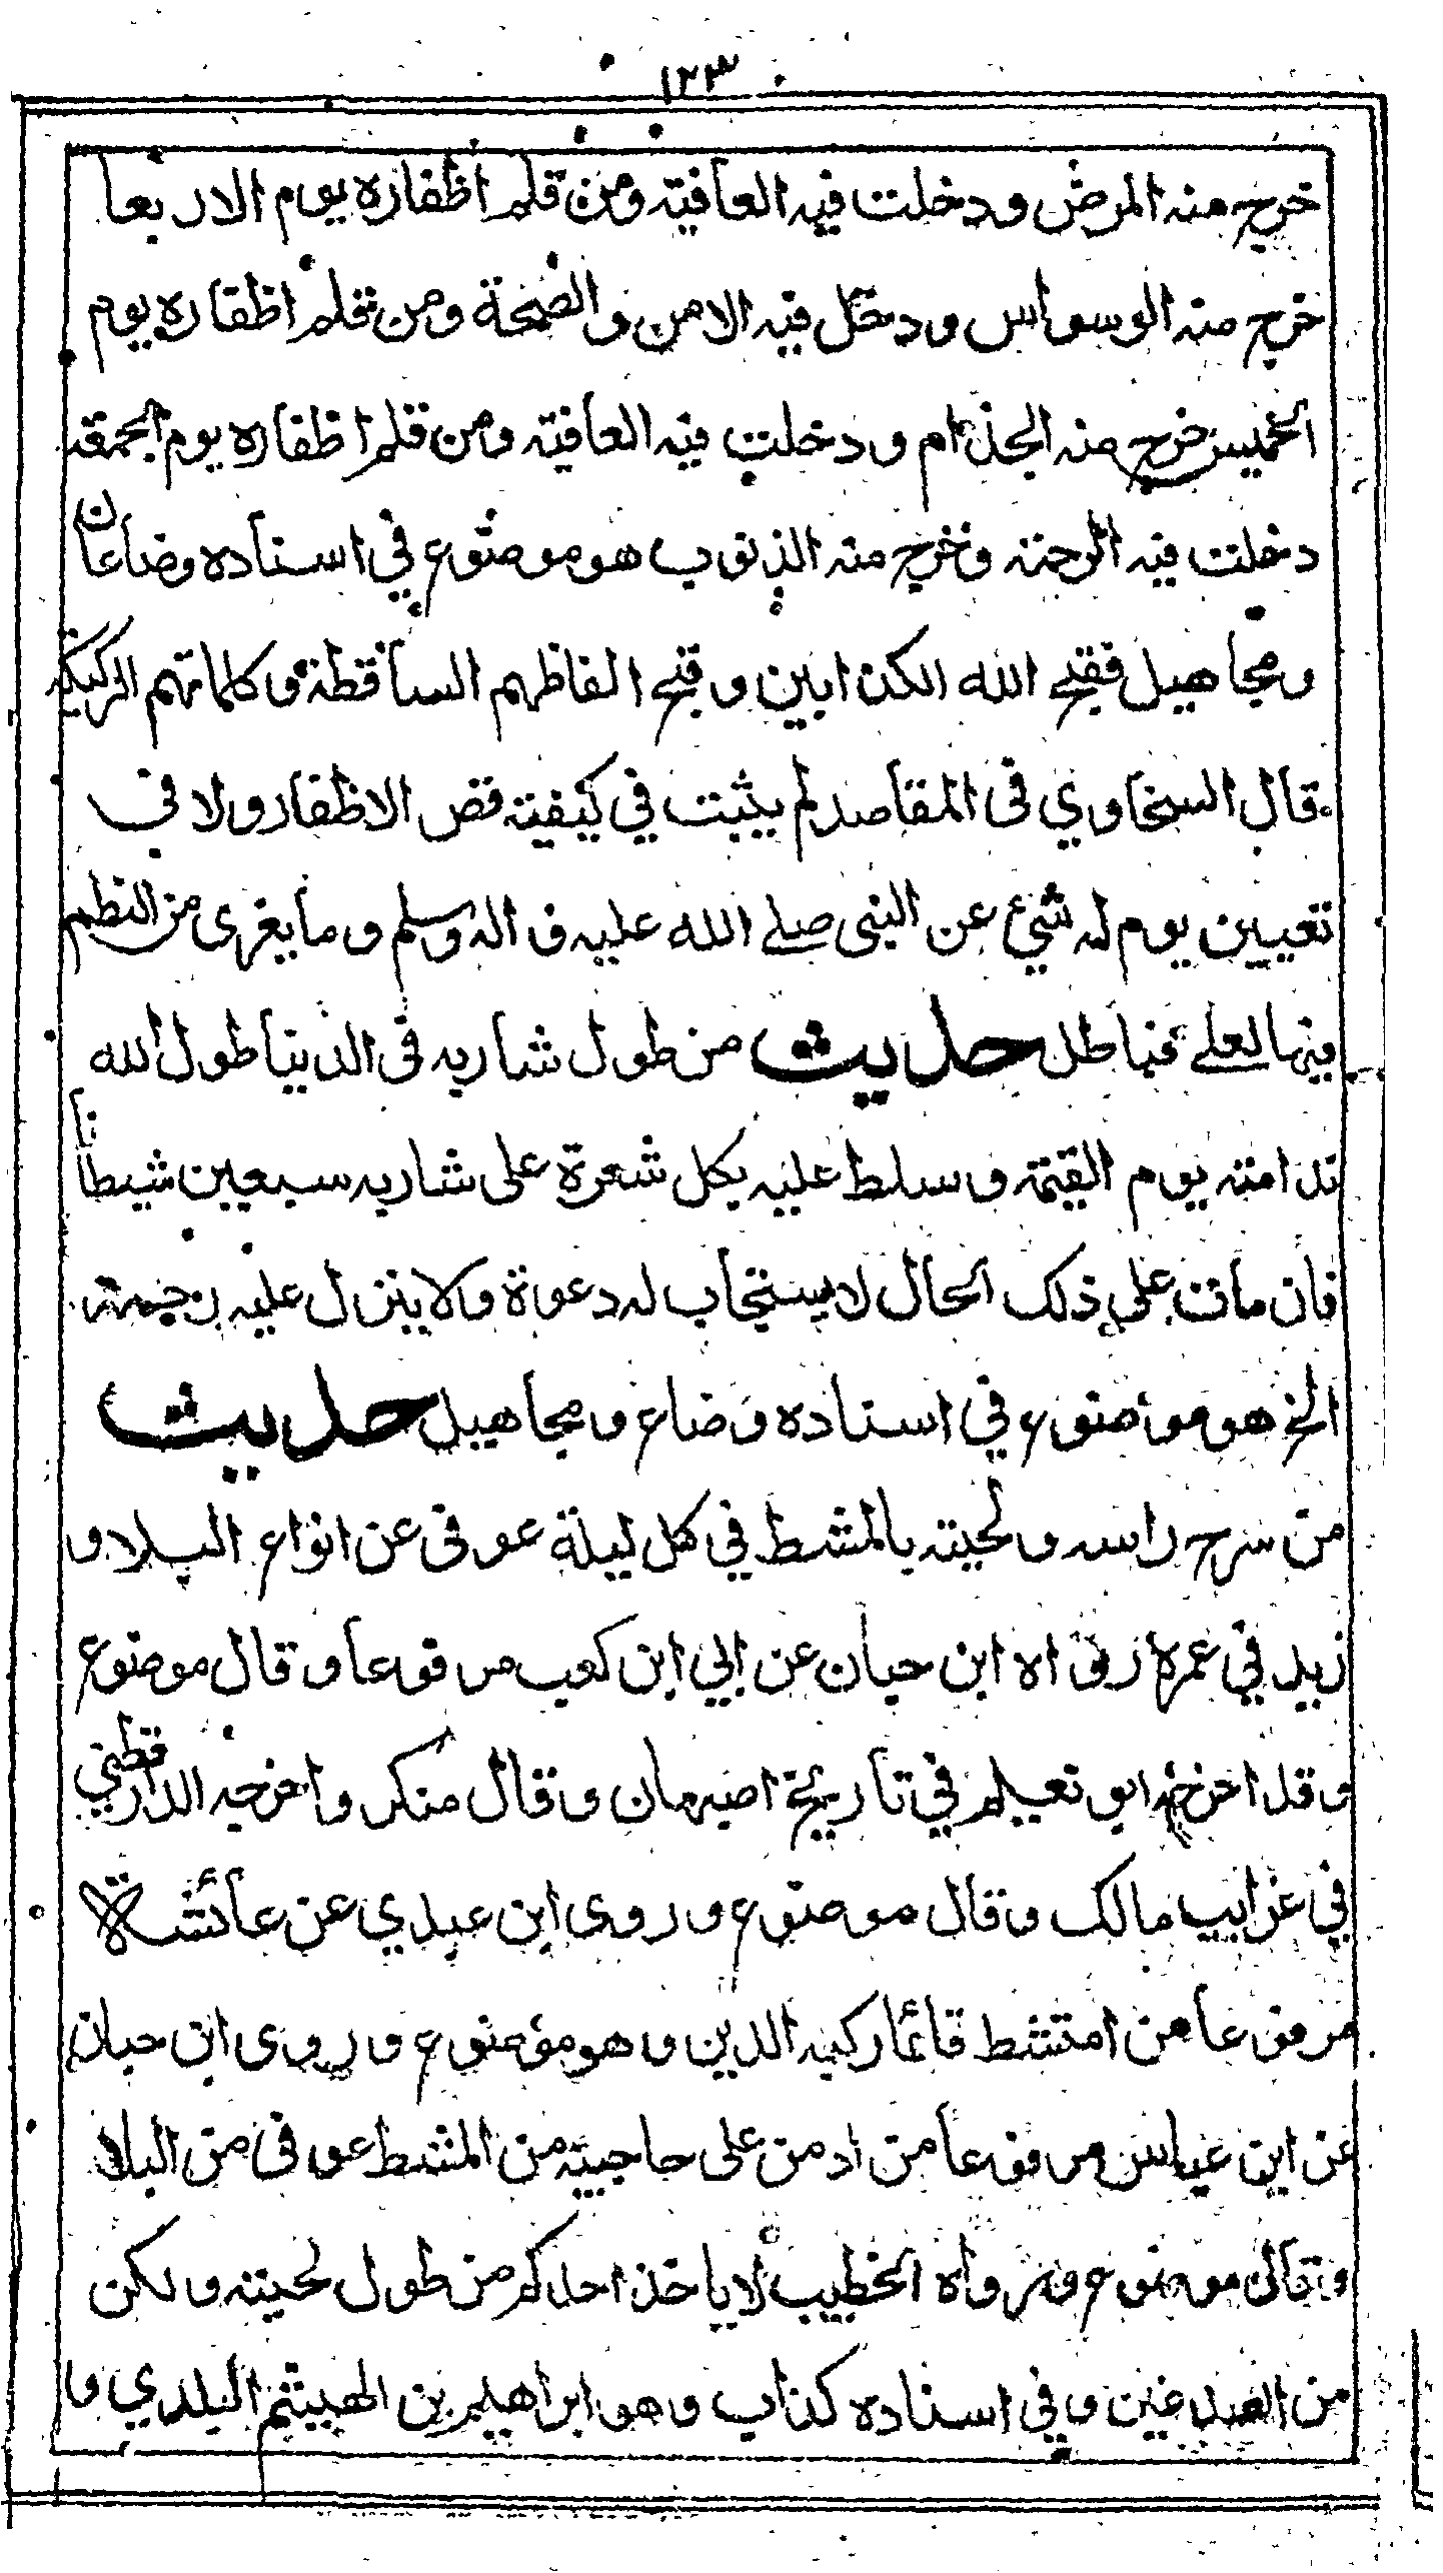 ١٢٣
خرج منه المرض ودخلت فيه العافية ومن قلم اظفاره يوم الاربعا
خرج منه الوسواس ودخل فيه الامن والصحة ومن قلم اظفاره يوم
الخميس خرج منه الجذام ودخلت فيه العافية ومن قلم اظفاره يوم الجمعة
دخلت فيه الرحمة وخرج منه الذنوب هو موضوع في اسناده وضاعان
ومجاهيل فقبح الله الكذابين وقبح الفاظهم الساقطة وكلماتهم الركيكة
قال السخاوي فى المقاصد لم يثبت في كيفية قص الاظفار ولا فى
تعيين يوم له شيء عن النبى صلے الله عليه و اله وسلم وما يعزى من النظم
فيها لعلے فباطل حديث من طول شاربه فى الدنيا طول الله
ندامته يوم القيمة وسلط عليه بكل شعرة على شاربه سبعين شيطانا
فان مات على ذلك الحال لا يستجاب له دعوة ولا ينزل عليه رحمة
الخ هو موضوع في اسناده وضاع ومجاهيل حديث
من سرح راسه ولحيته بالمشط في كل ليلة عوفى عن انواع البلا و
زيد في عمره رواه ابن حبان عن ابي ابن كعب مرفوعا وقال موضوع
وقد اخرجه ابو نعيم في تاريخ اصبهان وقال منكر واخرجه الدارقطني
في غرايب مالك وقال موضوع وروى ابن عدي عن عائشة
مرفوعا من امتشط قائما ركبه الدين وهو موضوع وروى ابن حبان
عن ابن عباس مرفوعا من ادمن على حاجبيه من المشط عوفى من البلا
وقال موضوع و رواه الخطيب لا ياخذ احدكم من طول لحيته ولكن
من الصدغين وفي اسناده كذاب وهو ابراهيم بن الهيثم البلدي و